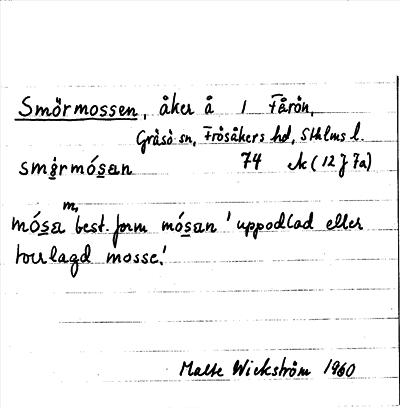 Smörmossen, åker å 1 Fårön,
Gräsö sn, Frösåkers hd, Sthlms l.
smørmósan 74 Ac (12 J 7a)
m,
mósa best. form mósan 'uppodlad eller
torrlagd mosse.'
Malte Wickström 1960